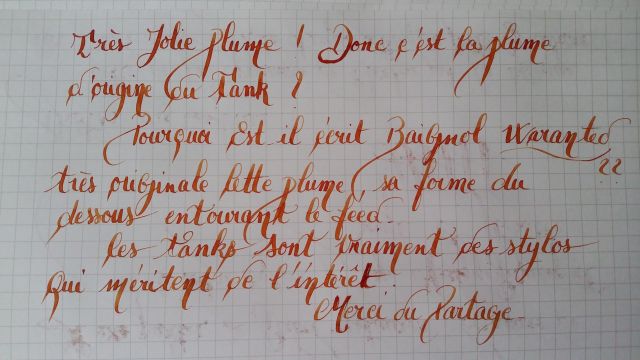 Très Jolie plume ! Donc c'est la plume
d'origine du Tank ?
Pourquoi est il écrit Baignol Waranted ??
très originale cette plume, sa forme du
dessous entourant le feed.
Les tanks sont vraiment des stylos
qui méritent de l'intérêt.
Merci du Partage.